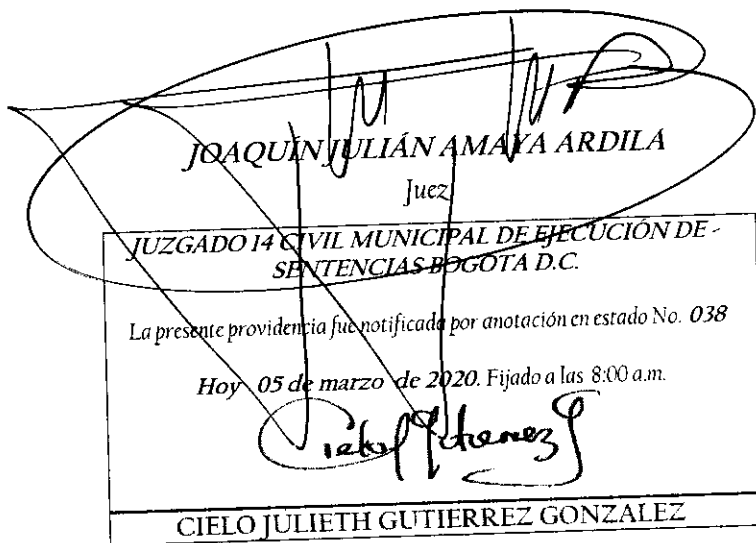 JOAQUÍN JULIÁN AMAYA ARDILA
Juez
JUZGADO 14 CIVIL MUNICIPAL DE EJECUCIÓN DE -
SENTENCIAS BOGOTA D.C.
La presente providencia fue notificada por anotación en estado No. 038
Hoy 05 de marzo de 2020. Fijado a las 8:00 a.m.
Cielo J Gutierrez G
CIELO JULIETH GUTIERREZ GONZALEZ